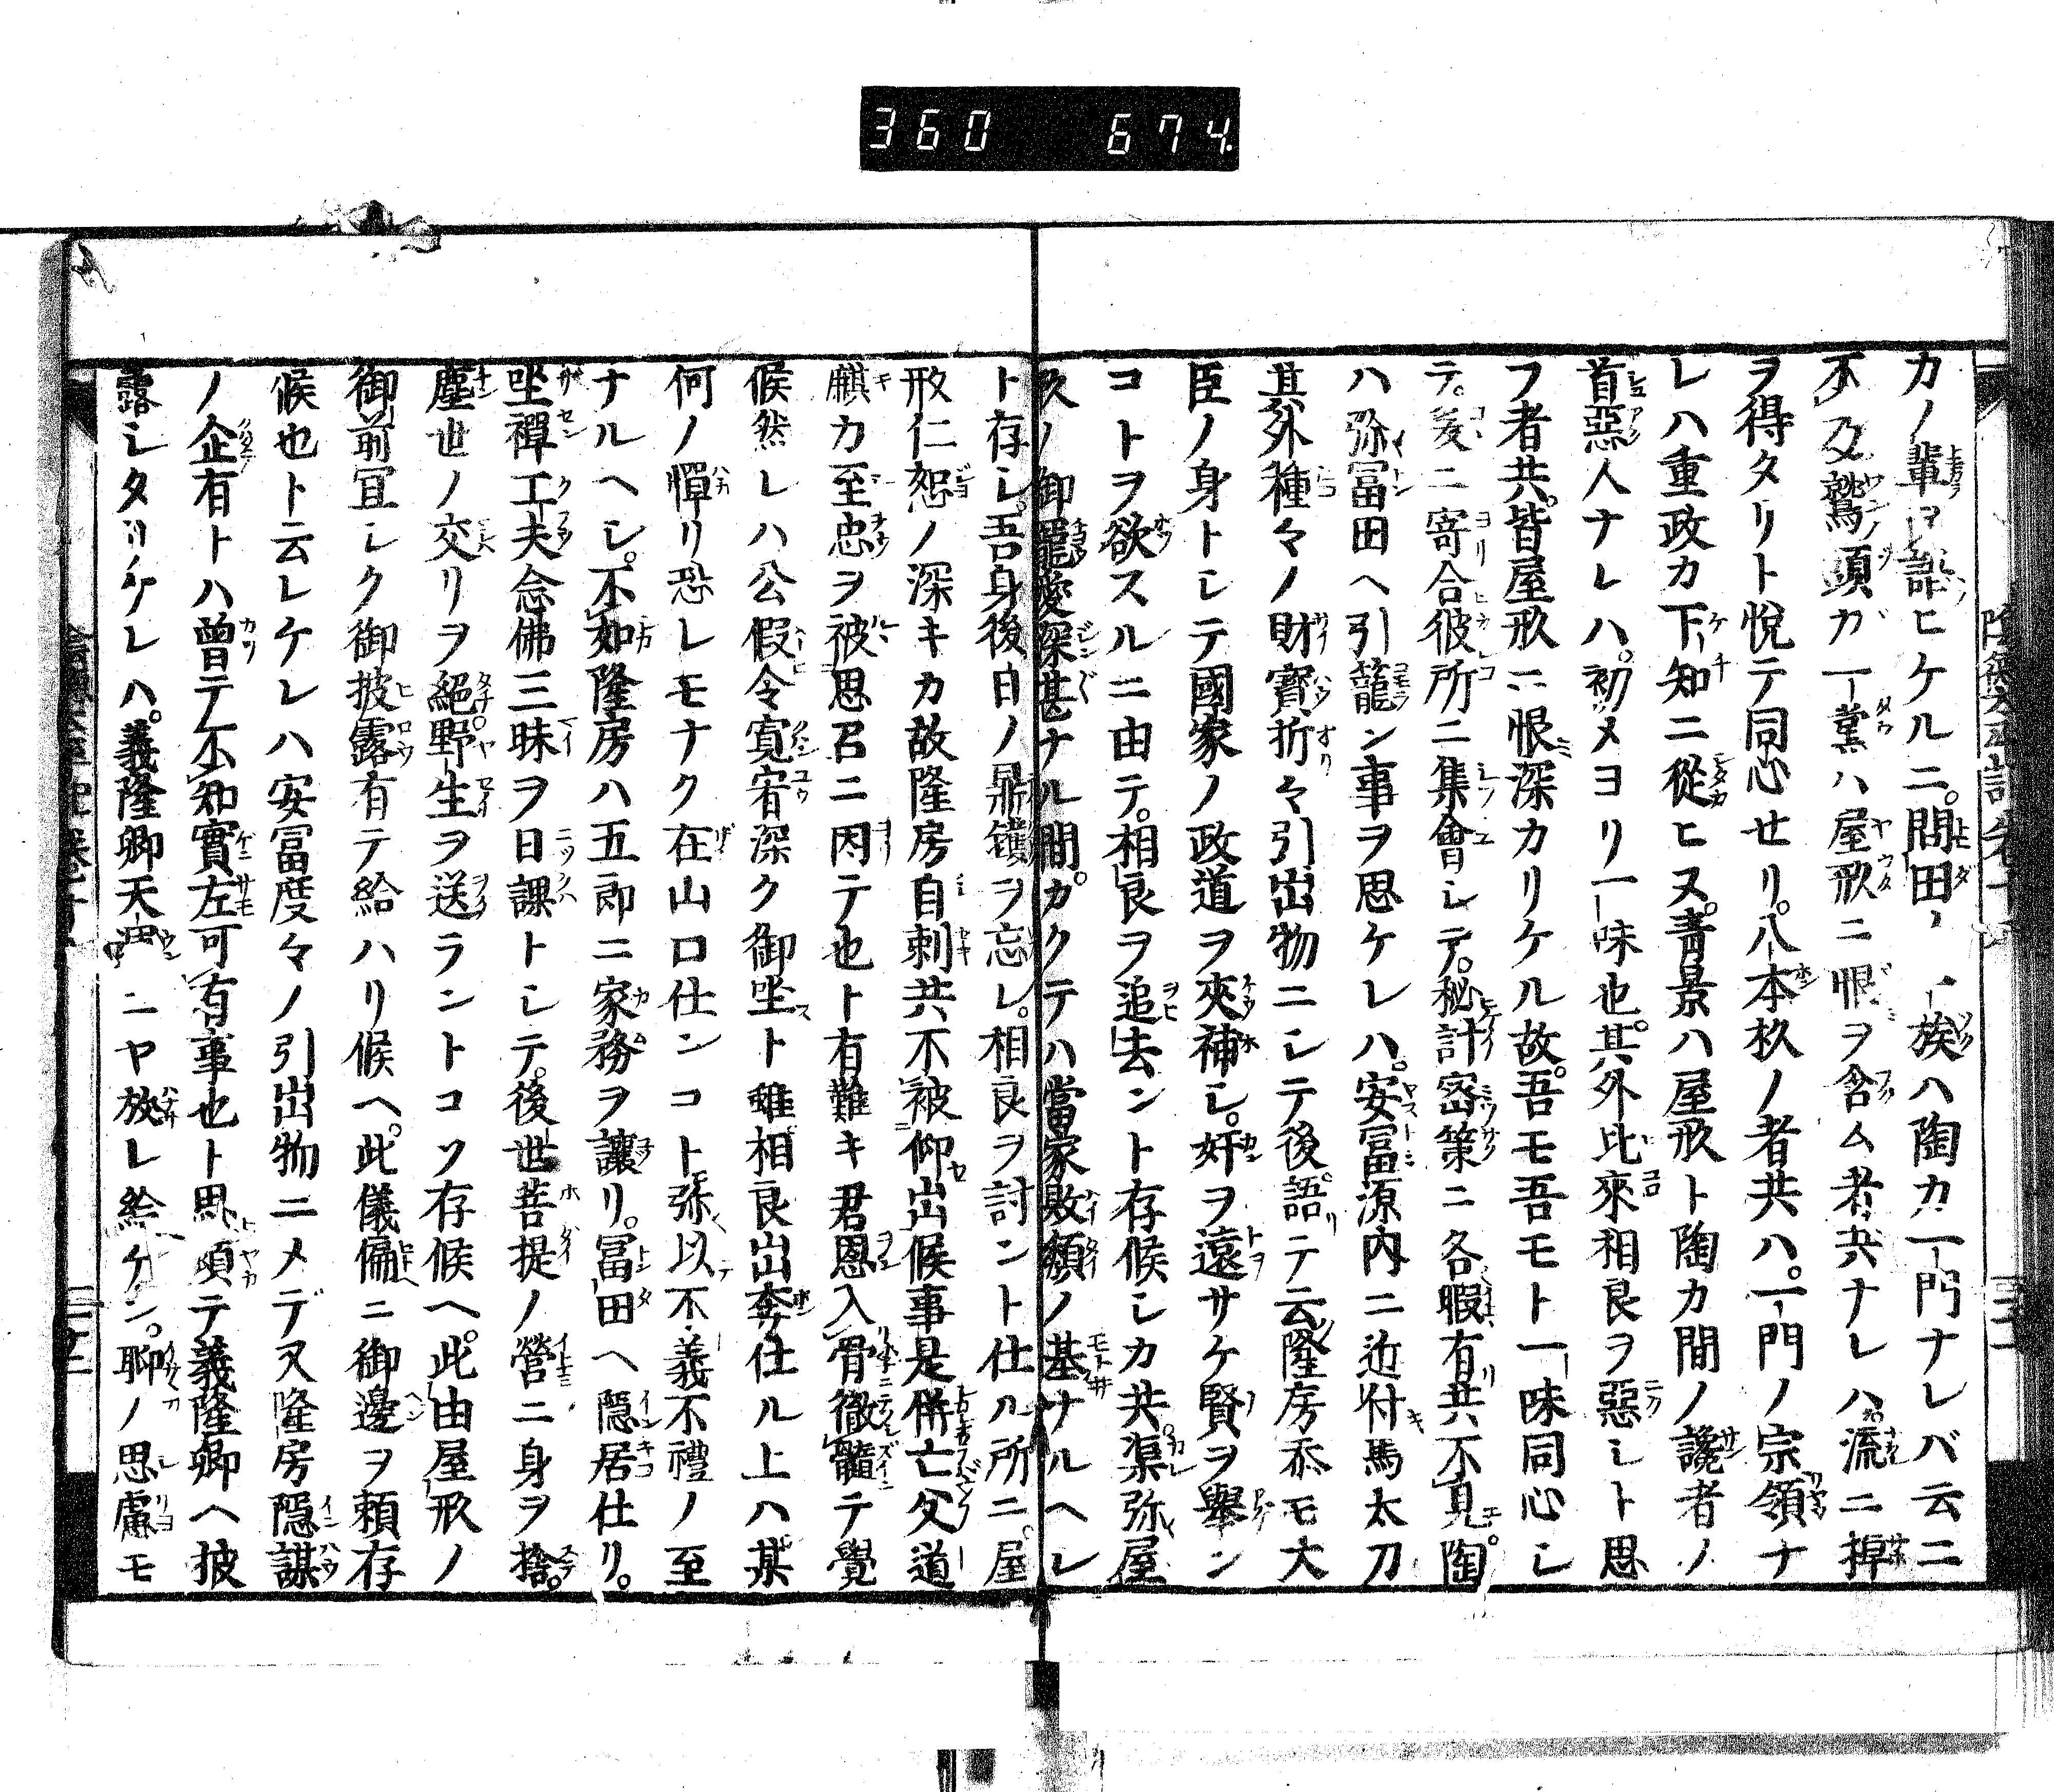 360 674
カノ輩ヲ語ヒケルニ。問田ノ一族ハ陶カ一門ナレバ云ニ
不及鷲頭ガ一黨ハ屋形ニ恨ヲ含ム者共ナレハ流ニ棹
ヲ得タリト悦テ同心せリ。八本杦ノ者共ハ。一門ノ宗領ナ
レハ重政カ下知ニ從ヒヌ。青景ハ屋形ト陶カ間ノ讒者ノ
首惡人ナレハ。初メヨリ一味也。其外比來相良ヲ惡シト思
フ者共。皆屋形ニ恨深カリケル故。吾モ吾モト一味同心シ
テ。爰ニ寄合彼所ニ集會シテ。秘計密策ニ各暇有共不見。陶
ハ弥冨田ヘ引籠ン事ヲ思ケレハ。安冨源内ニ近付馬太刀
其外種々ノ財寳折々引出物ニシテ後語テ云隆房忝モ大
臣ノ身トシテ國家ノ政道ヲ夾補シ。奸ヲ遠サケ賢ヲ舉ン
コトヲ欲スルニ由テ。相良ヲ追去ント存候シカ共。渠弥屋
形ノ御寵愛深甚ナル間。カクテハ當家敗頽ノ基ナルヘシ
ト存シ。吾身後日ノ鼎鑊ヲ忘レ。相良ヲ討ント仕ル所ニ。屋
形仁恕ノ深キカ故隆房自刺共不被仰出候事是併亡父道
麒カ至忠ヲ被思召ニ因テ也ト有難キ君恩入骨徹髓テ覺
候然レハ公假令寛宥深ク御坐ト雖相良出奔仕ル上ハ某
何ノ憚リ恐レモナク在山口仕ンコト弥以不義不禮ノ至
ナルヘシ。不如隆房ハ五郎ニ家務ヲ讓リ。冨田ヘ隱居仕リ。
坐禪工夫念佛三昧ヲ日課トシテ。後世菩提ノ營ニ身ヲ捨。
塵世ノ交リヲ絕。野生ヲ送ラントコソ存候ヘ。此由屋形ノ
御前冝シク御披露有テ給ハリ候ヘ。此儀偏ニ御邊ヲ頼存
候也ト云レケレハ安冨度々ノ引出物ニメデヌ隆房隱謀
ノ企有トハ曾テ不知實左可有事也ト思頓テ義隆卿ヘ披
露シタリケレハ。義隆卿天運ニヤ放レ給ケン。聊ノ思慮モ